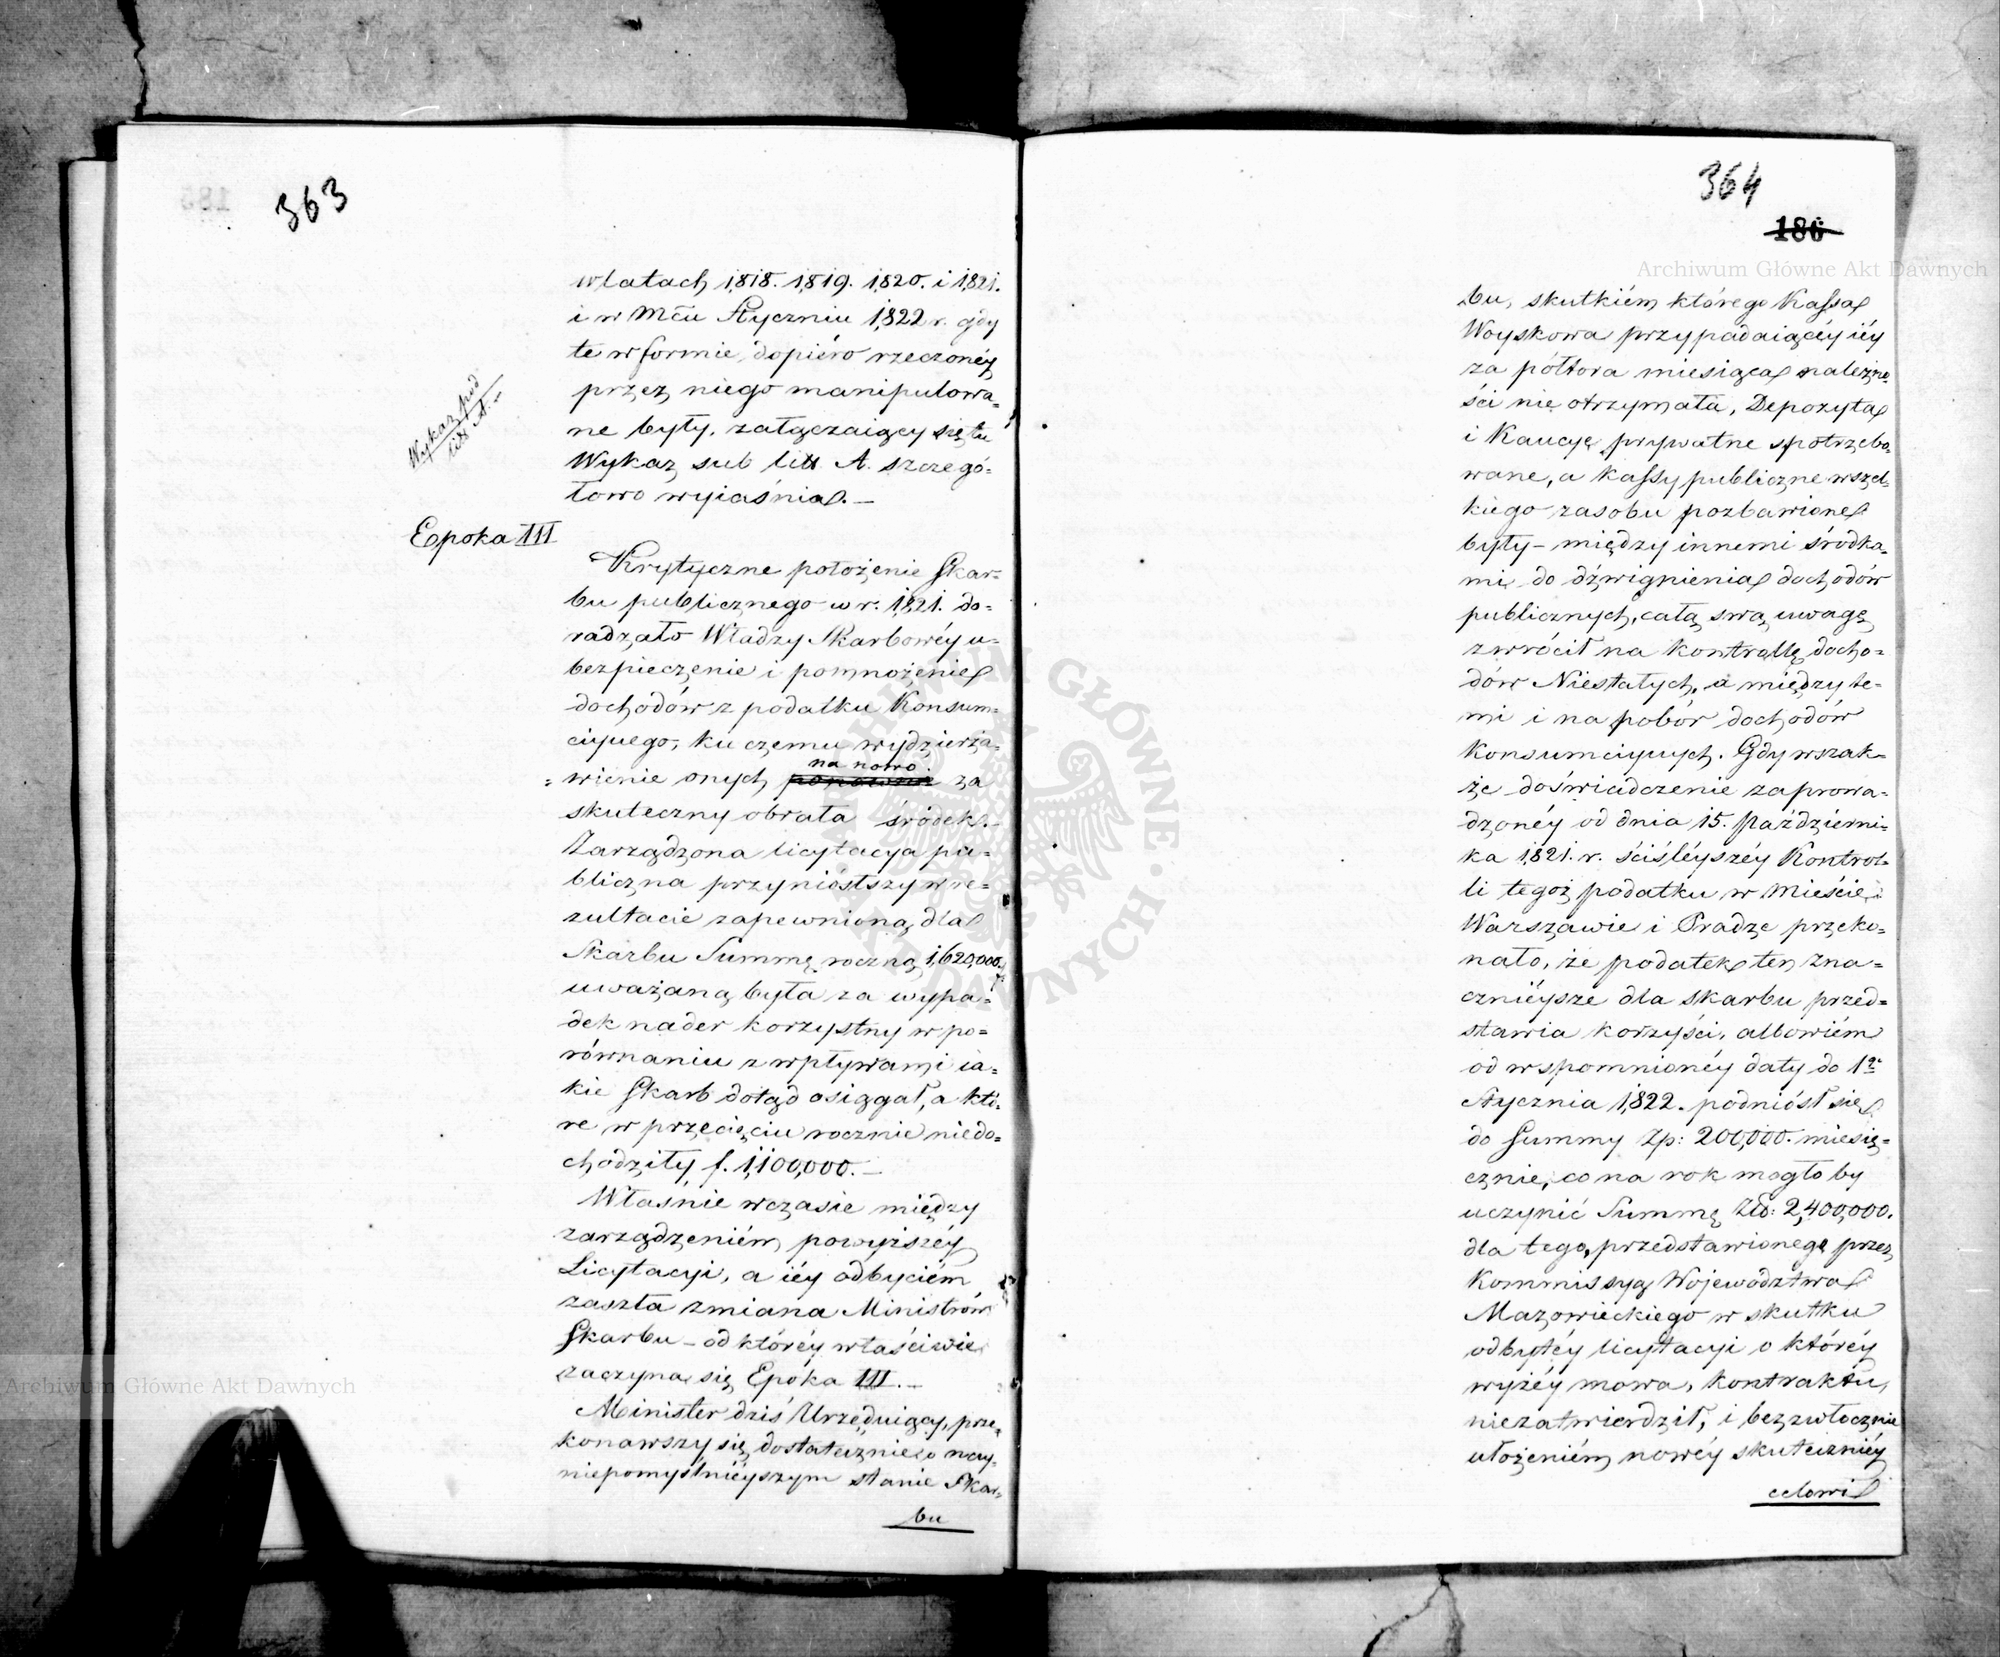 363
w latach 1818. 1819. 1820. i 1821.
i w Mcu Styczniu 1822 r. gdy
te w formie dopiéro rzeczonéy
przez niego manipulowa=
ne były, załączaiący się tu
Wykaz sub litt. A. szczegó=
łowo wyiaśnia. —
Wykaz pod
litt A. –
Epoka III
Krytyczne położenie Skar=
bu publicznego w r. 1821. do=
radzało Władzy Skarbowéy u=
bezpieczenie i pomnożenie
dochodów z podatku Konsum=
cyinego, ku czemu wydzierża=
na nowo
= wienie onych ponownie za
skuteczny obrała środek. –
Zarządzona licytacya pu=
bliczna przyniósłszy w re=
zultacie zapewnioną dla
Skarbu Summę roczną 1,620,000.
uważaną była za wypa=
dek nader korzystny w po=
równaniu z wpływami ia=
kie Skarb dotąd osiągał, a któ=
re w przecięciu rocznie niedo=
chodziły f. 1,100,000. —
Właśnie w czasie między
zarządzeniém powyższéy
Licytacyi, a iéy odbyciém
zaszła zmiana Ministrów
Skarbu – od któréy właściwie
zaczyna się Epoka III. –
Minister dziś Urzęduiący, prze=
konawszy się dostatecznie o nay=
niepomyślnieyszym stanie Skar=
bu
364
186
Archiwum Główne Akt Dawnych
bu, skutkiém którego Kassa
Woyskowa przypadaiącéy iéy
za półtora miesiąca należno=
ści nie otrzymała, Depozyta
i Kaucye prywatne spotrzebo=
wane, a kassy publiczne wszel=
kiego zasobu pozbawione
były – między innemi środka=
mi do dźwignienia dochodów
publicznych, całą swą uwagę
zwrócił na kontrollę docho=
dów Niestałych, a między te=
mi i na pobór dochodów
Konsumcyinych. Gdy wszak=
że doświadczenie zaprowa=
dzonéy od dnia 15. Październi=
ka 1821. r. ściśléyszéy Kontrol=
li tegoż podatku w Mieście
Warszawie i Pradze przeko=
nało, że podatek ten zna=
cznieysze dla skarbu przed=
stawia korzyści, albowiém
od wspomnionéy daty do 1go
Stycznia 1822. podniósł się
do Summy Zp: 200,000. miesię=
cznie, co na rok mogło by
uczynić Summę Złł: 2,400,000.
dla tego, przedstawionego przez
Kommissyą Województwa
Mazowieckiego w skutku
odbytéy licytacyi o któréy
wyżéy mowa, kontraktu,
niezatwierdził, i bezzwłocznie
ułożeniém nowéy skutecznéy
celowi
ARCHIWUM GŁÓWNE AKT DAWNYCH
Archiwum Główne Akt Dawnych